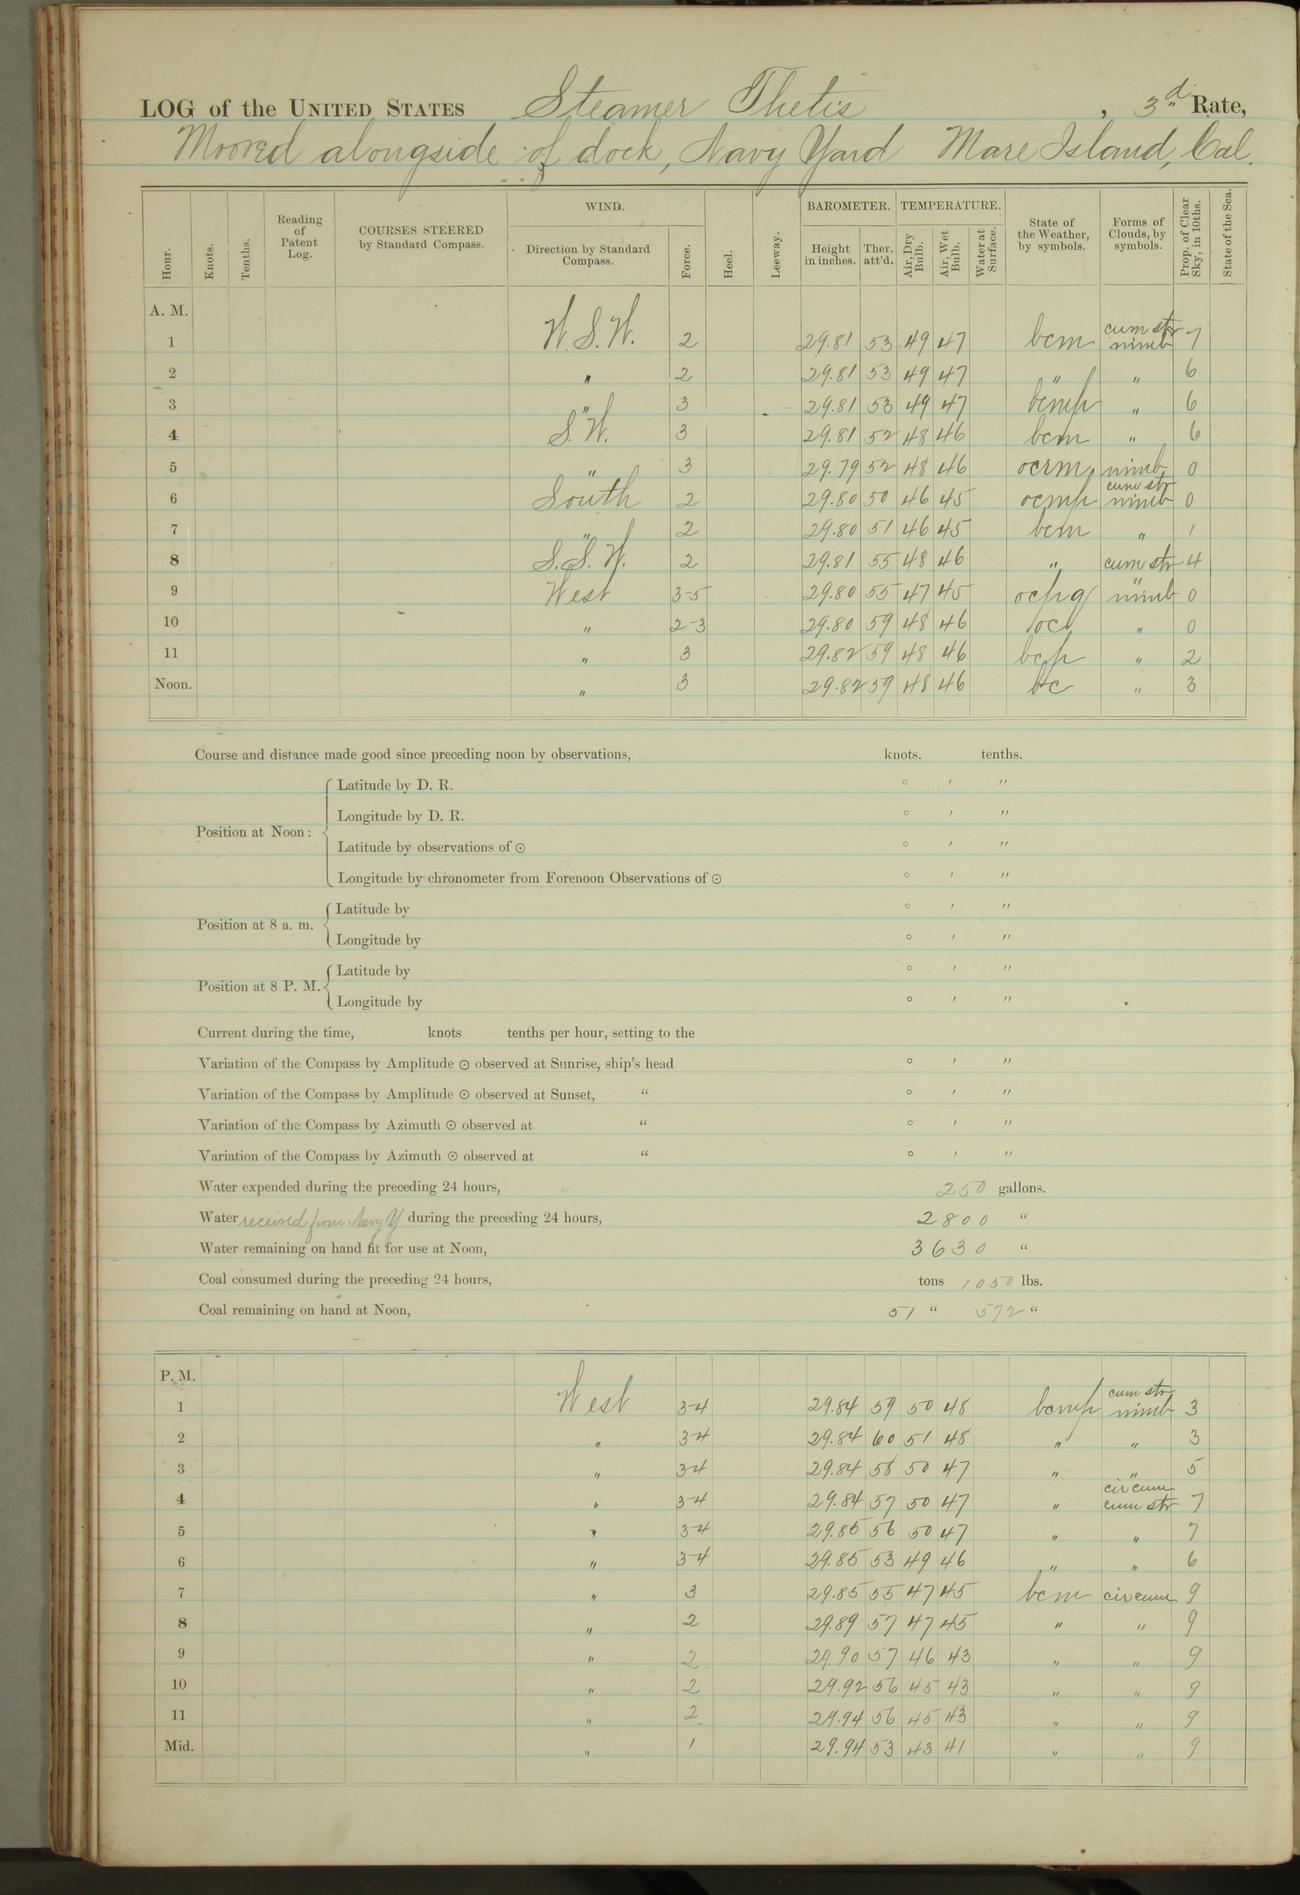 LOG of the UNITED STATES Steamer Thetis, 3d Rate,
Moored alongside of dock, Navy Yard Mare Island, Cal.
Hour. Knots. Tenths. Reading of Patent Log. COURSES STEERED by Standard Compass. WIND. Direction by Standard Compass. Force. Heel. Leeway. BAROMETER. Height in inches. Ther. att'd. TEMPERATURE. Air, Dry Bulb. Air, Wet Bulb. Water at Surface. State of the Weather, by symbols. Forms of Clouds, by symbols. Prop. of Clear Sky, in 10ths. State of the Sea.
A. M.
1 W.S.W. 2 29.81 53 49 47 bcm cum str nimb 7
2 " 2 29.81 53 49 47 " " 6
3 " 3 29.81 53 49 47 bcmp " 6
4 S.W. 3 29.81 52 48 46 bcm " 6
5 " 3 29.79 52 48 46 ocrm nimb 0
6 South 2 29.80 50 46 45 ocmp cum str nimb 0
7 " 2 29.80 51 46 45 bcm " 1
8 S.S.W. 2 29.81 55 48 46 " cum str 4
9 West 3-5 29.80 55 47 45 ocpq " nimb 0
10 " 2-3 29.80 59 48 46 oc " 0
11 " 3 29.82 59 48 46 bcp " 2
Noon. " 3 29.82 59 48 46 bc " 3
Course and distance made good since preceding noon by observations, knots. tenths.
Position at Noon: Latitude by D. R. ° ′ ″
Longitude by D. R. ° ′ ″
Latitude by observations of ⊙ ° ′ ″
Longitude by chronometer from Forenoon Observations of ⊙ ° ′ ″
Position at 8 a. m. Latitude by ° ′ ″
Longitude by ° ′ ″
Position at 8 P. M. Latitude by ° ′ ″
Longitude by ° ′ ″
Current during the time, knots tenths per hour, setting to the
Variation of the Compass by Amplitude ⊙ observed at Sunrise, ship's head ° ′ ″
Variation of the Compass by Amplitude ⊙ observed at Sunset, " ° ′ ″
Variation of the Compass by Azimuth ⊙ observed at " ° ′ ″
Variation of the Compass by Azimuth ⊙ observed at " ° ′ ″
Water expended during the preceding 24 hours, 250 gallons.
Water received from Navy Y during the preceding 24 hours, 2800 "
Water remaining on hand fit for use at Noon, 3630 "
Coal consumed during the preceding 24 hours, tons 1050 lbs.
Coal remaining on hand at Noon, 51 " 572 "
P. M.
1 West 3-4 29.84 59 50 48 bcmp cum str nimb 3
2 " 3-4 29.84 60 51 48 " " 3
3 " 3-4 29.84 58 50 47 " " 5
4 " 3-4 29.84 57 50 47 " cir cum cum str 7
5 " 3-4 29.85 56 50 47 " " 7
6 " 3-4 29.85 53 49 46 " " 6
7 " 3 29.85 55 47 45 bcm cir cum 9
8 " 2 29.89 57 47 45 " " 9
9 " 2 29.90 57 46 43 " " 9
10 " 2 29.92 56 45 43 " " 9
11 " 2 29.94 56 45 43 " " 9
Mid. " 1 29.94 53 43 41 " " 9